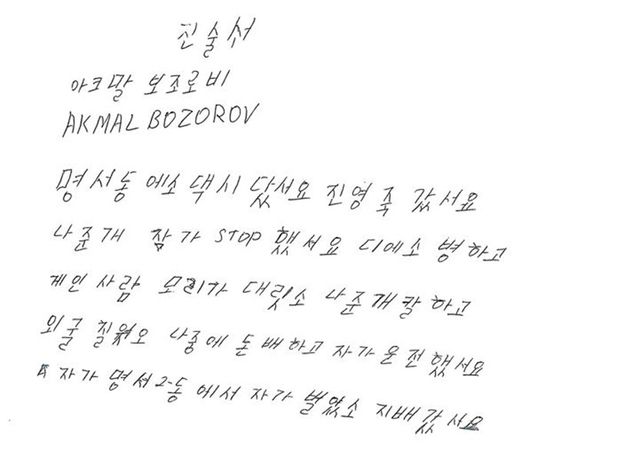 진술서
아크말 보조로비
AKMAL BOZOROV
명서동 에소 댁시 닸서요 진영 죽 갔서요
나준개 잠가 STOP 했서요 디에소 병하고
게인 사람 모리가 대릿소 나준개칼 하고
외굴 질웠오 나중에 돈 배하고 자가 운전 했서요
자가 명서2-동 에서 자가 벌었소 지배갔서요